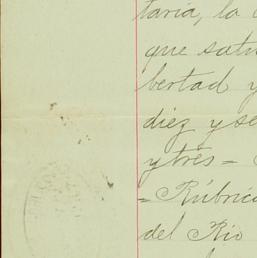 taria, la
que satis
bertad y
diez y se
y tres =
= Rúbrica
del Rio